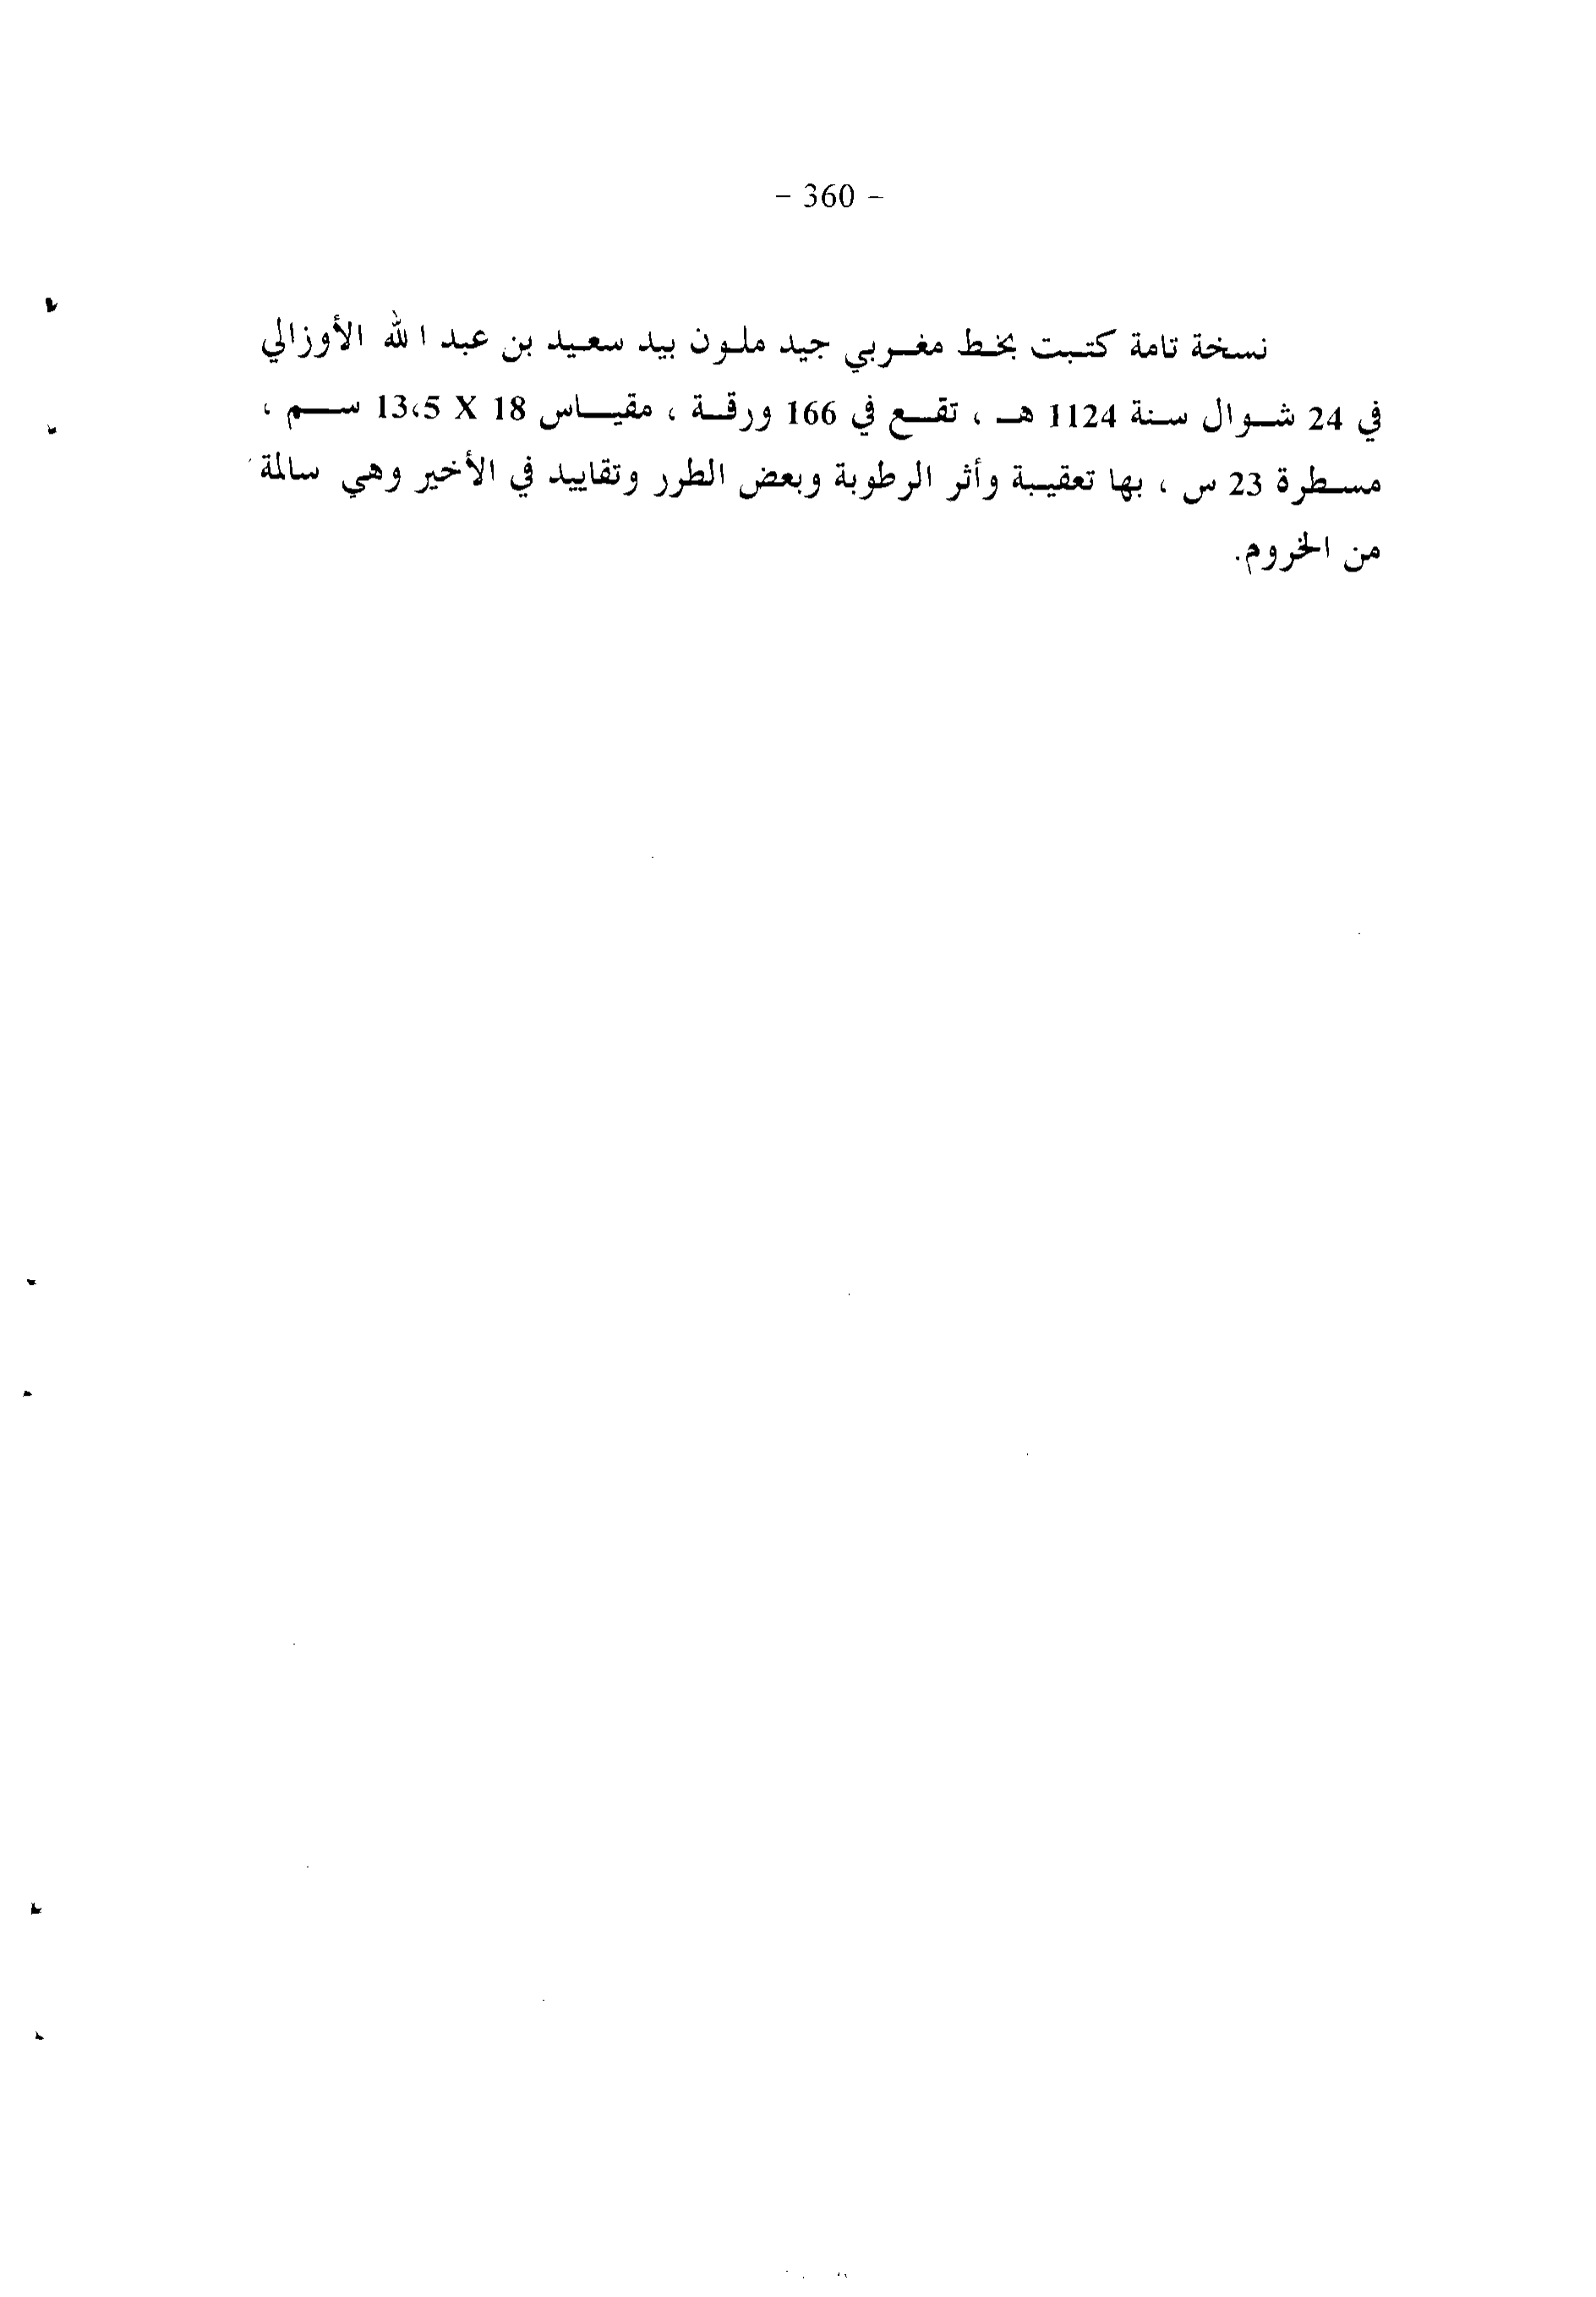 - 360 -
نسخة تامة كتبت بخط مغربي جيد ملون بيد سعيد بن عبد الله الأوزالي
في 24 شوال سنة 1124 هـ ، تقع في 166 ورقة ، مقياس 18 X 13،5 سم ،
مسطرة 23 س ، بها تعقيبة وأثر الرطوبة وبعض الطرر وتقاييد في الأخير وهي سالمة
من الخروم.